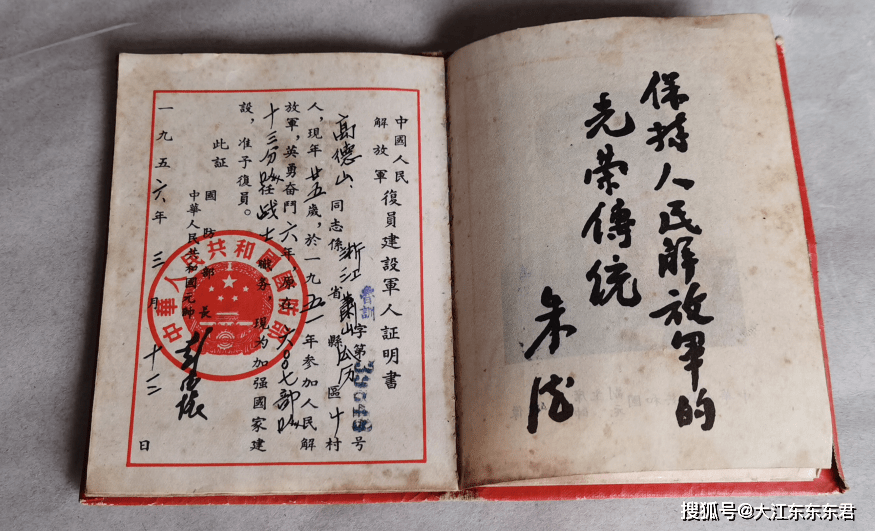 保持人民解放軍的
光荣傳統
朱德
中國人民
解放軍
復員建設軍人証明書
字第 号
高德山同志係浙江省蕭山縣瓜历區十村
人，現年廿五歲，於一九五一年參加人民解
放軍，英勇奮鬥六年，原在六〇七部队
十三分队任战士職务，現为加强國家建
設，准予復員。
此証
國防部長
中華人民共和國元帥
彭德怀
一九五六年三月十三日
中華人民共和國國防部
搜狐号@大江东东东君